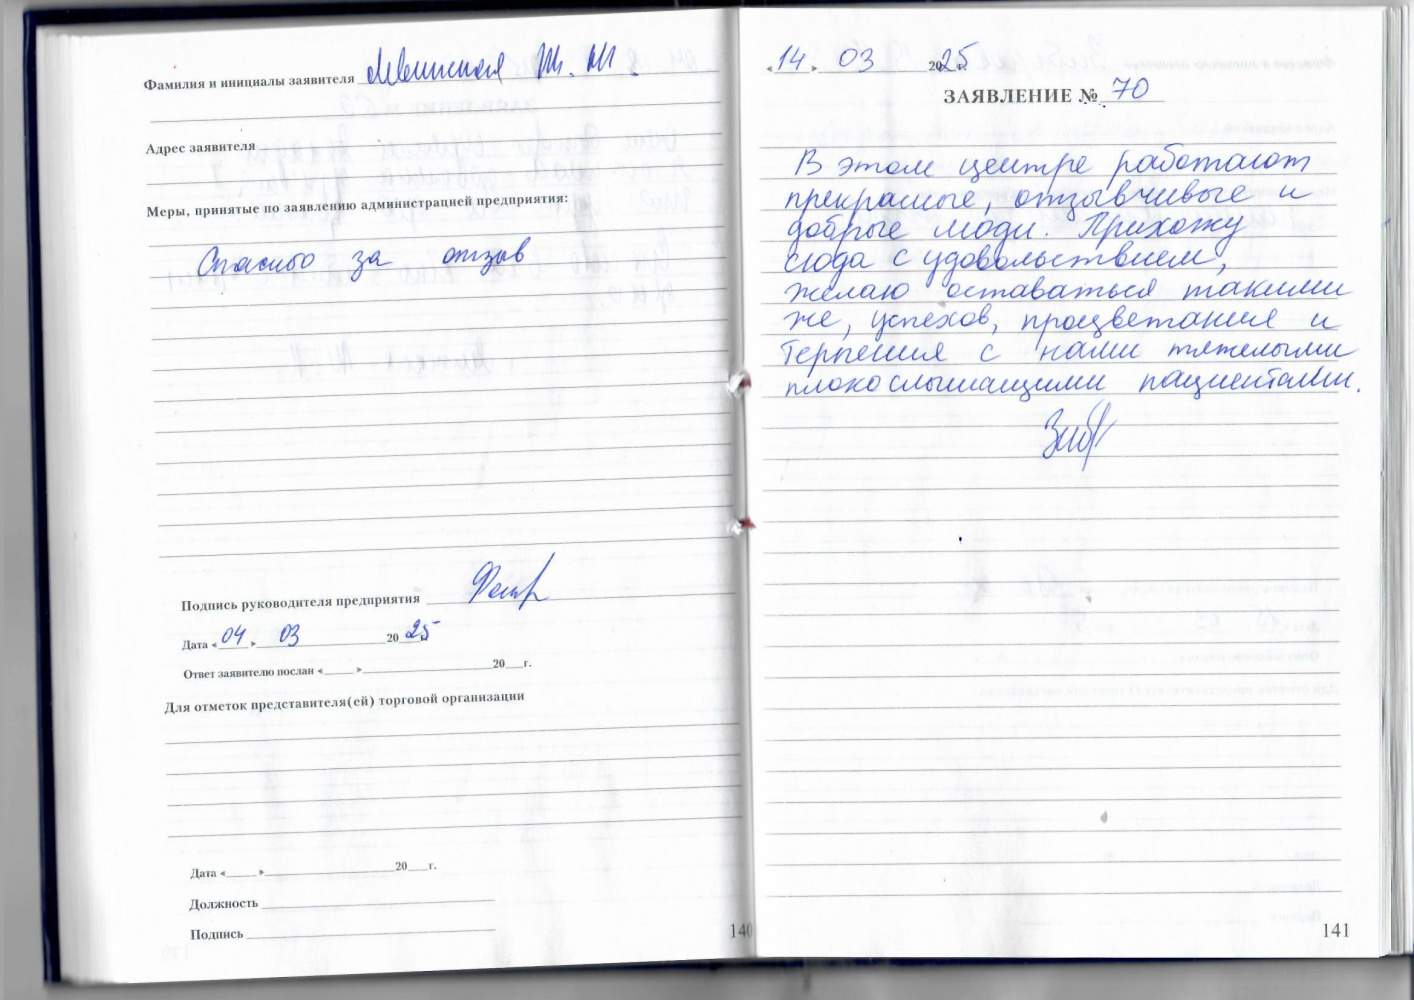 Фамилия и инициалы заявителя
Адрес заявителя
Меры, принятые по заявлению администрацией предприятия:
Спасибо за отзыв
Подпись руководителя предприятия
Дата «04» 03 2025
Ответ заявителю послан «___» 20__г.
Для отметок представителя(ей) торговой организации
Дата «___» 20__г.
Должность
Подпись
140
«14» 03 2025 г.
ЗАЯВЛЕНИЕ № 70
В этом центре работают
прекрасные, отзывчивые и
добрые люди. Прихожу
сюда с удовольствием,
желаю оставаться такими
же, успехов, процветания и
терпения с нами тяжелыми
плохослышащими пациентами.
141